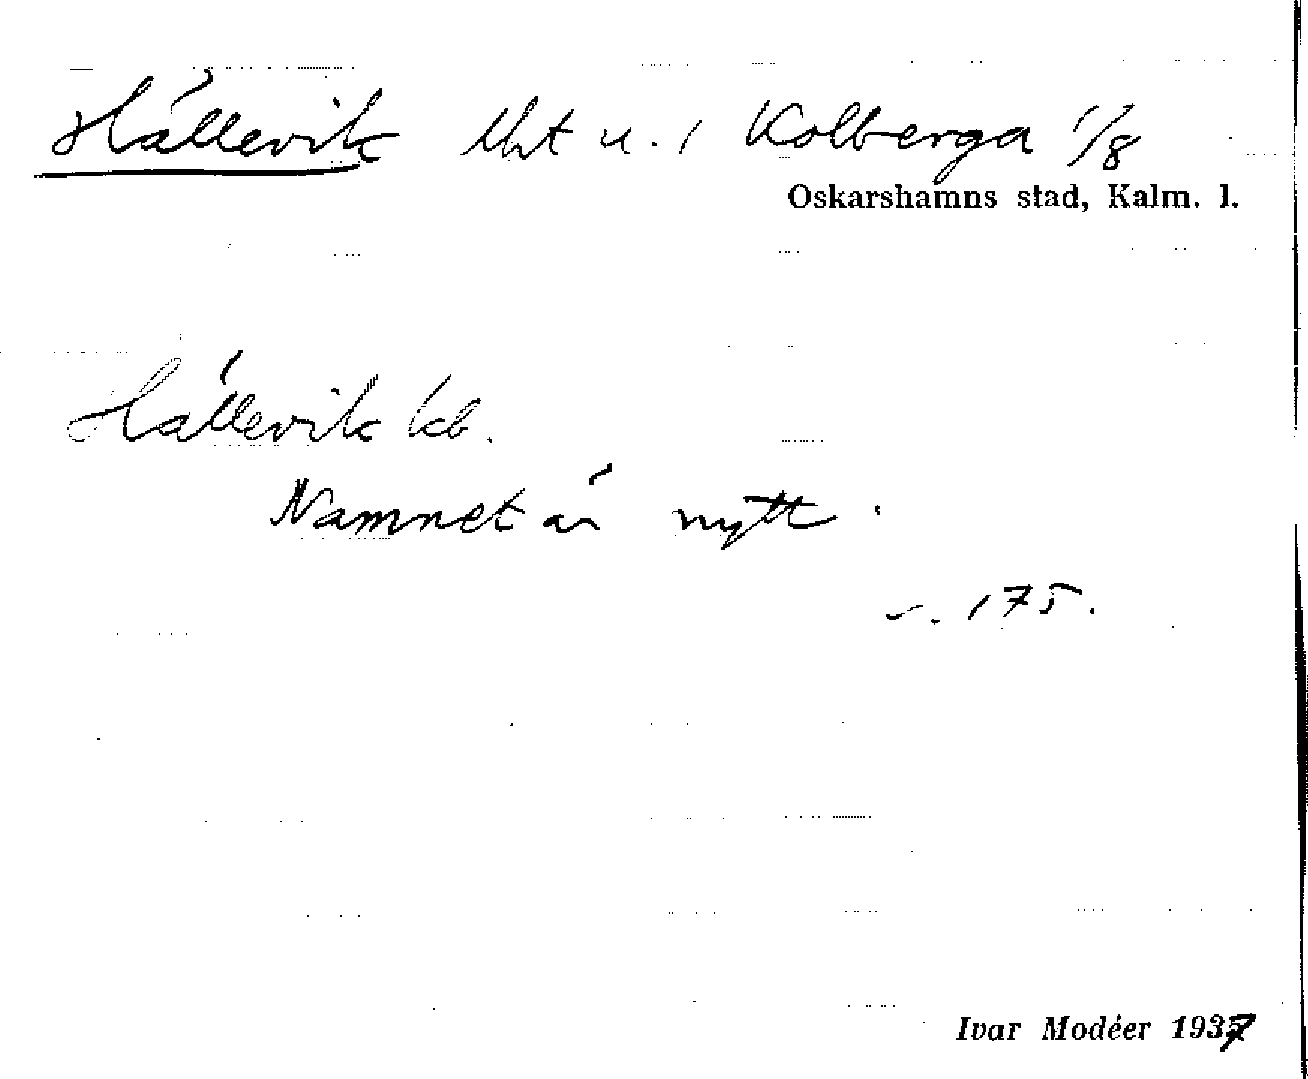 Hällevik lht u. / Kolberga 1/8
Oskarshamns stad, Kalm. l.
Hällevik kb.
Namnet är nytt.
175.
Ivar Modéer 1937